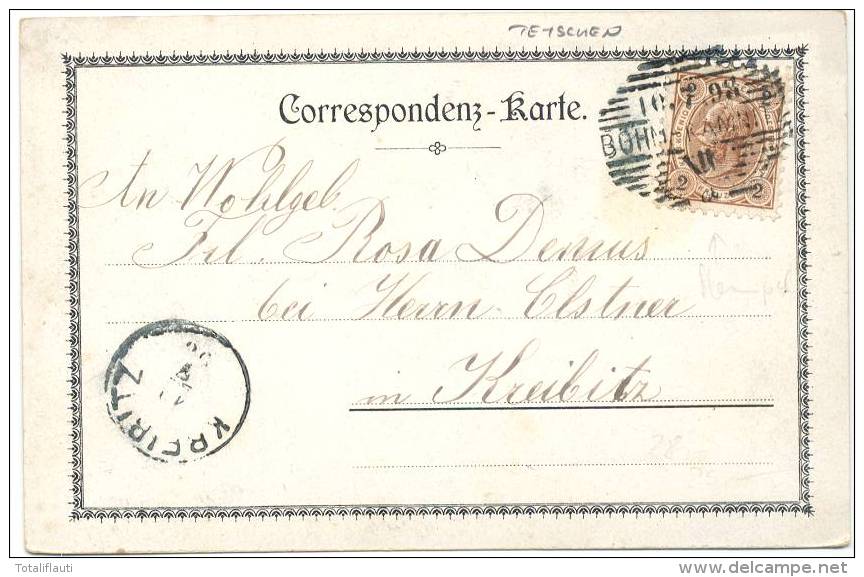 TETSCHEN
Correspondenz-Karte.
BÖHM. KAMN
2 2
An Wohlgeb
Frl. Rosa Demus
bei Herrn Elstner
in Kreibitz
KREIBITZ
Stempel
28
Totaliflauti
www.delcampe.net